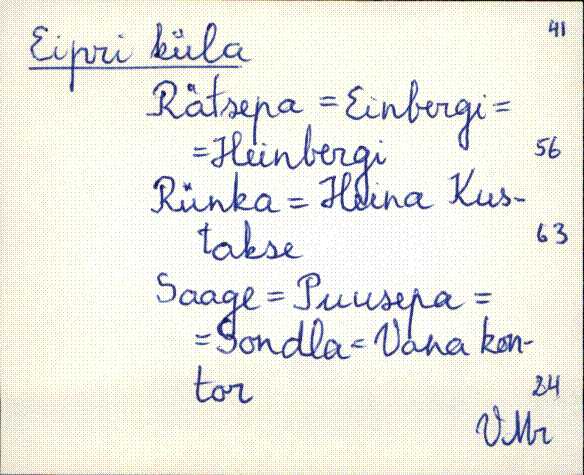 41
Eipri küla
Rätsepa = Einbergi =
= Heinbergi 56
Rünka = Heina Kus-
takse 63
Saage = Puusepa =
= Sondla = Vana kon-
tor 24
VMr